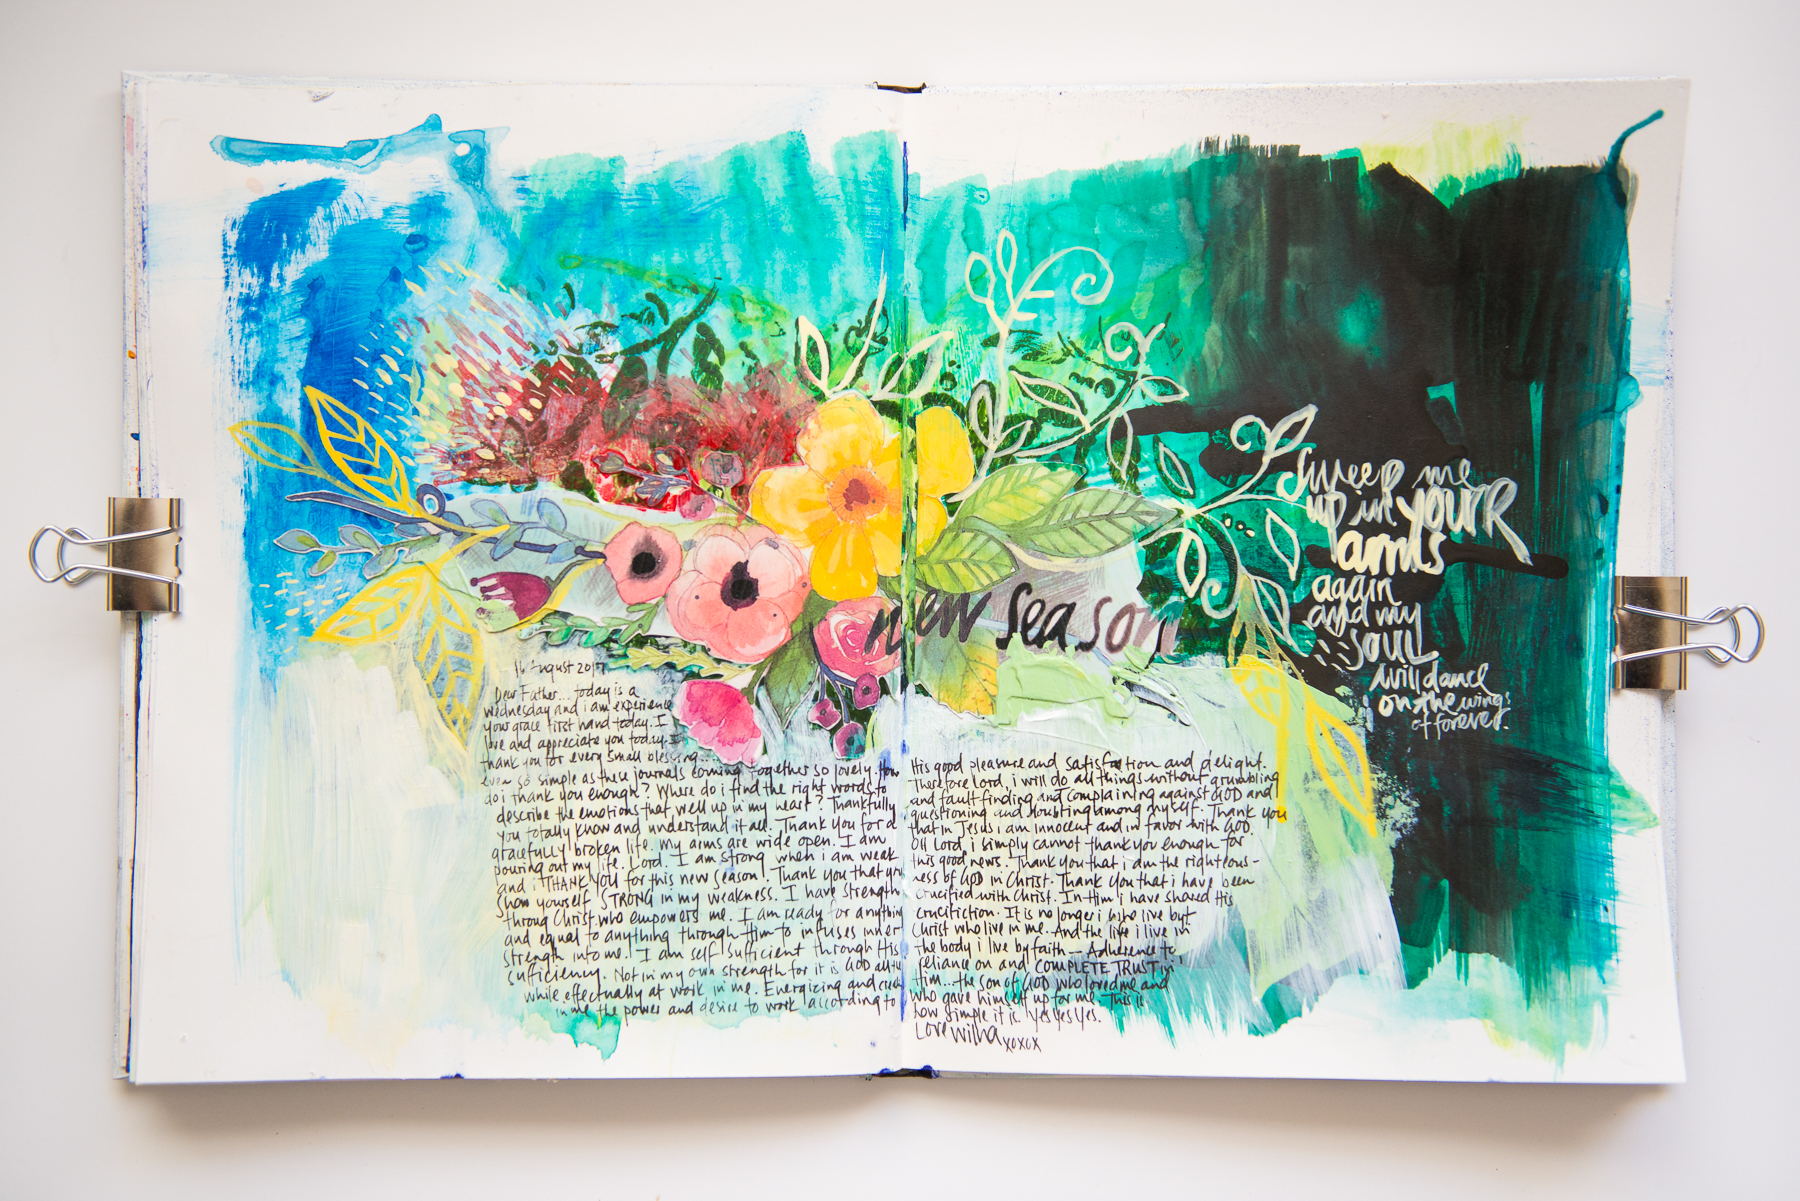 new season
Sweep me
up in your
arms
again
and my
SOUL
will dance
on the wings
of forever.
16 August 2017
Dear Father... today is a
wednesday and i am experience
your grace first hand today. I
love and appreciate you today. I
thank you for every small blessing...
even so simple as these journals coming together so lovely. How
do i thank you enough? Where do i find the right words to
describe the emotions that well up in my heart? Thankfully
you totally know and understand it all. Thank you for a
gracefully broken life. My arms are wide open. I am
pouring out my life. Lord. I am strong when i am weak
and i THANK YOU for this new season! Thank you that you
show yourself STRONG in my weakness. I have strength
throug Christ who empowers me. I am ready for anything
and equal to anything through Him to infuses inner
strength into me. I am self sufficient through His
sufficiency. Not in my own strength for it is GOD all the
while effectually at work in me. Energizing and
in me the power and desire to work according to
His good pleasure and satisfaction and delight.
Therefore Lord, i will do all things without grumbling
and fault finding and complaining against GOD and
questioning and doubting among myself. Thank you
that in Jesus i am innocent and in favor with GOD.
OH Lord, i simply cannot thank you enough for
this good news. Thank you that i am the righteous-
ness of GOD in Christ. Thank You that i have been
crucified with Christ. In Him i have shared His
crucifiction. It is no longer i who live byt
Christ who live in me. And the life i live in
the body i live by faith - Adherence to,
reliance on and COMPLETE TRUST in
Him... the son of GOD who loved me and
who gave himself up for me. This is
how simple it is. Yes Yes Yes.
Love Wilna xoxox